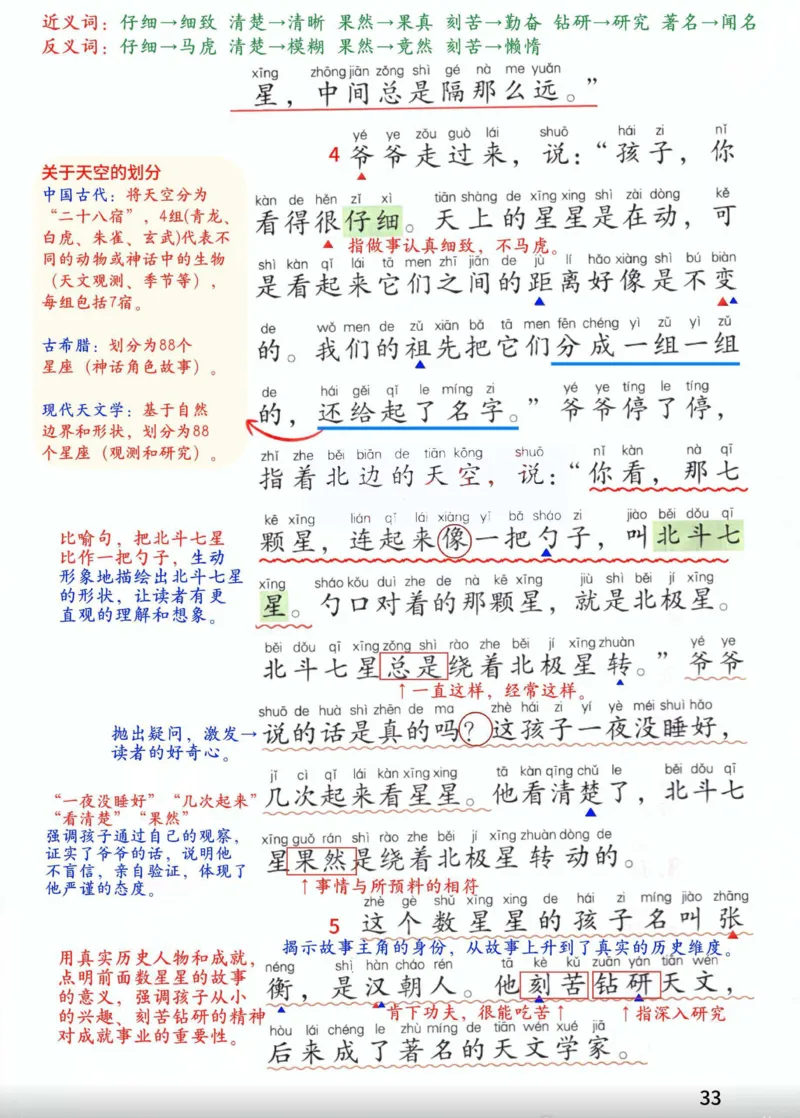 近义词：仔细→细致 清楚→清晰 果然→果真 刻苦→勤奋 钻研→研究 著名→闻名
反义词：仔细→马虎 清楚→模糊 果然→竟然 刻苦→懒惰
xīng zhōng jiān zǒng shì gé nà me yuǎn
星，中间总是隔那么远。”
yé ye zǒu guò lái shuō hái zi nǐ
4 爷爷走过来，说：“孩子，你
关于天空的划分
中国古代：将天空分为
“二十八宿”，4组(青龙、
白虎、朱雀、玄武)代表不
同的动物或神话中的生物
（天文观测、季节等），
每组包括7宿。
古希腊：划分为88个
星座（神话角色故事）。
现代天文学：基于自然
边界和形状，划分为88
个星座（观测和研究）。
kàn de hěn zǐ xì tiān shàng de xīng xing shì zài dòng kě
看得很仔细。天上的星星是在动，可
指做事认真细致，不马虎。
shì kàn qǐ lái tā men zhī jiān de jù lí hǎo xiàng shì bú biàn
是看起来它们之间的距离好像是不变
de wǒ men de zǔ xiān bǎ tā men fēn chéng yì zǔ yì zǔ
的。我们的祖先把它们分成一组一组
de hái gěi qǐ le míng zi yé ye tíng le tíng
的，还给起了名字。”爷爷停了停，
zhǐ zhe běi biān de tiān kōng shuō nǐ kàn nà qī
指着北边的天空，说：“你看，那七
kē xīng lián qǐ lái xiàng yì bǎ sháo zi jiào běi dǒu qī
颗星，连起来像一把勺子，叫北斗七
比喻句，把北斗七星
比作一把勺子，生动
形象地描绘出北斗七星
的形状，让读者有更
直观的理解和想象。
xīng sháo kǒu duì zhe de nà kē xīng jiù shì běi jí xīng
星。勺口对着的那颗星，就是北极星。
běi dǒu qī xīng zǒng shì rào zhe běi jí xīng zhuàn yé ye
北斗七星总是绕着北极星转。”爷爷
↑一直这样，经常这样。
shuō de huà shì zhēn de ma zhè hái zi yí yè méi shuì hǎo
说的话是真的吗？这孩子一夜没睡好，
抛出疑问，激发→
读者的好奇心。
jǐ cì qǐ lái kàn xīng xing tā kàn qīng chǔ le běi dǒu qī
几次起来看星星。他看清楚了，北斗七
“一夜没睡好”“几次起来”
“看清楚”“果然”
强调孩子通过自己的观察，
证实了爷爷的话，说明他
不盲信，亲自验证，体现了
他严谨的态度。
xīng guǒ rán shì rào zhe běi jí xīng zhuàn dòng de
星果然是绕着北极星转动的。
↑事情与所预料的相符
zhè gè shǔ xīng xing de hái zi míng jiào zhāng
5 这个数星星的孩子名叫张
揭示故事主角的身份，从故事上升到了真实的历史维度。
用真实历史人物和成就，
点明前面数星星的故事
的意义，强调孩子从小
的兴趣、刻苦钻研的精神
对成就事业的重要性。
héng shì hàn cháo rén tā kè kǔ zuān yán tiān wén
衡，是汉朝人。他刻苦钻研天文，
肯下功夫，很能吃苦↑ ↑指深入研究
hòu lái chéng le zhù míng de tiān wén xué jiā
后来成了著名的天文学家。
33